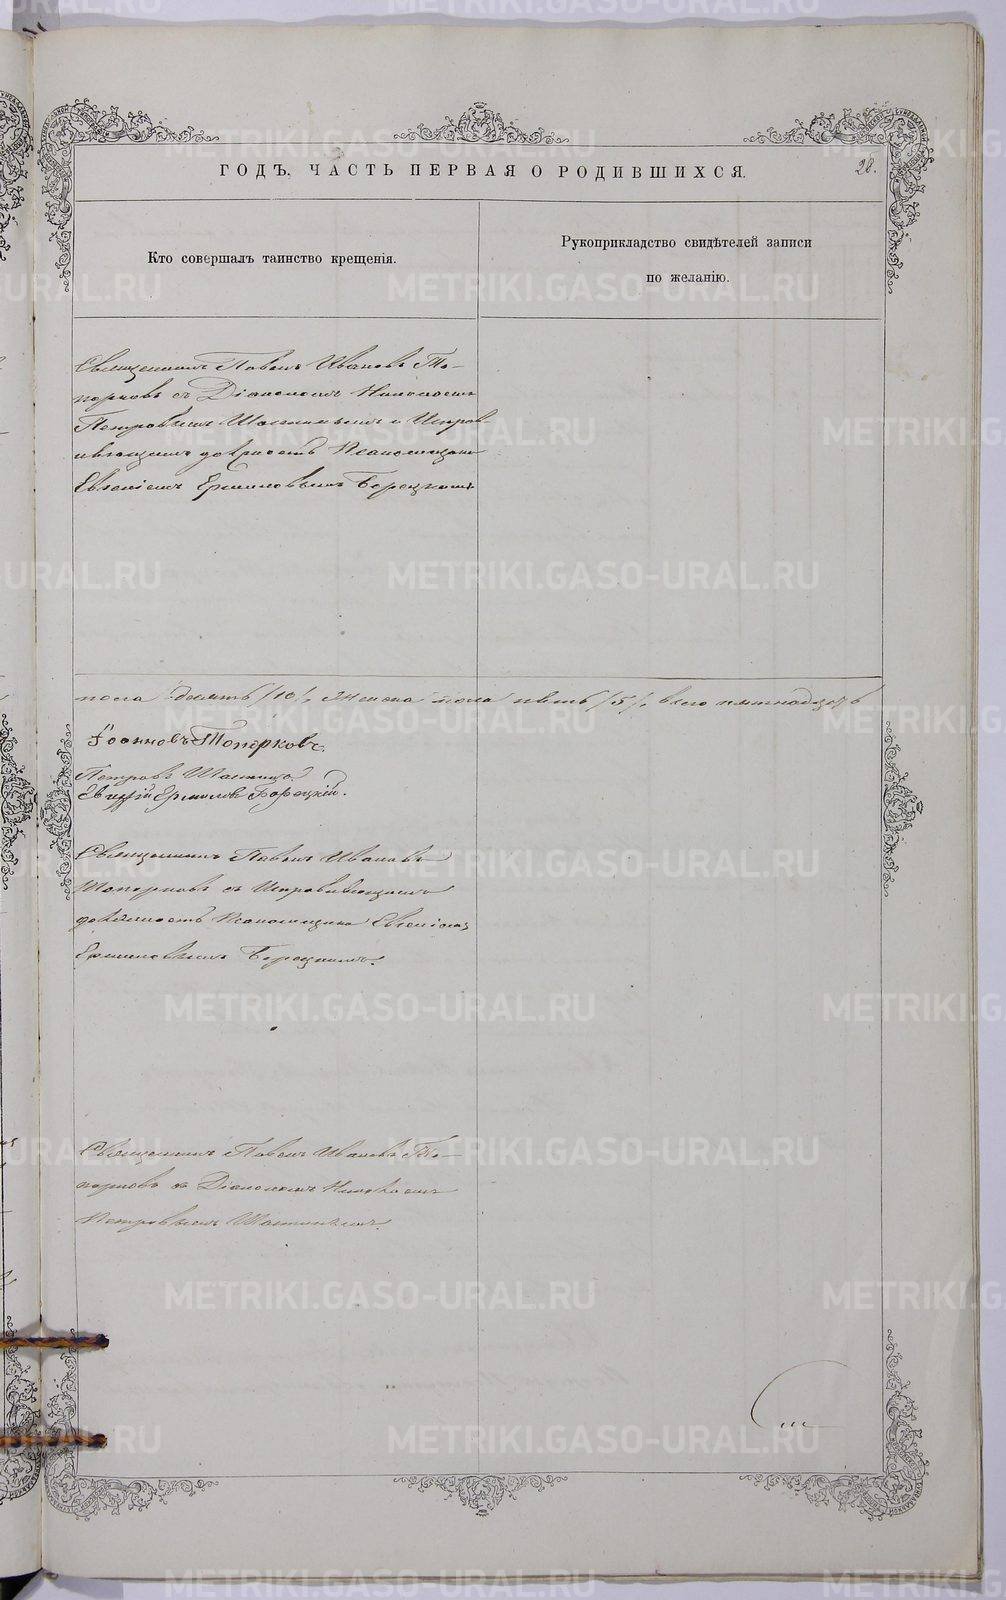 ГОДЪ. ЧАСТЬ ПЕРВАЯ О РОДИВШИХСЯ.
28.
Кто совершалъ таинство крещенія.
Рукоприкладство свидѣтелей записи
по желанію.
Священникъ Павелъ Ивановъ То-
порковъ съ Діакономъ Николаемъ
Петровымъ и Исправ-
ляющимъ должность Псаломщика
Евгеніемъ Ермиловымъ Борецкимъ
пола десять /10/, Женска пола пять /5/, всего пятнадцать
Іоанновъ Топорковъ.
Петровъ
Евгеній Ермиловъ Борецкій.
Священникъ Павелъ Ивановъ
Топорковъ съ Исправляющимъ
должность Псаломщика Евгеніемъ
Ермиловымъ Борецкимъ.
Священникъ Павелъ Ивановъ То-
порковъ съ Діакономъ Николаемъ
Петровымъ
METRIKI.GASO-URAL.RU